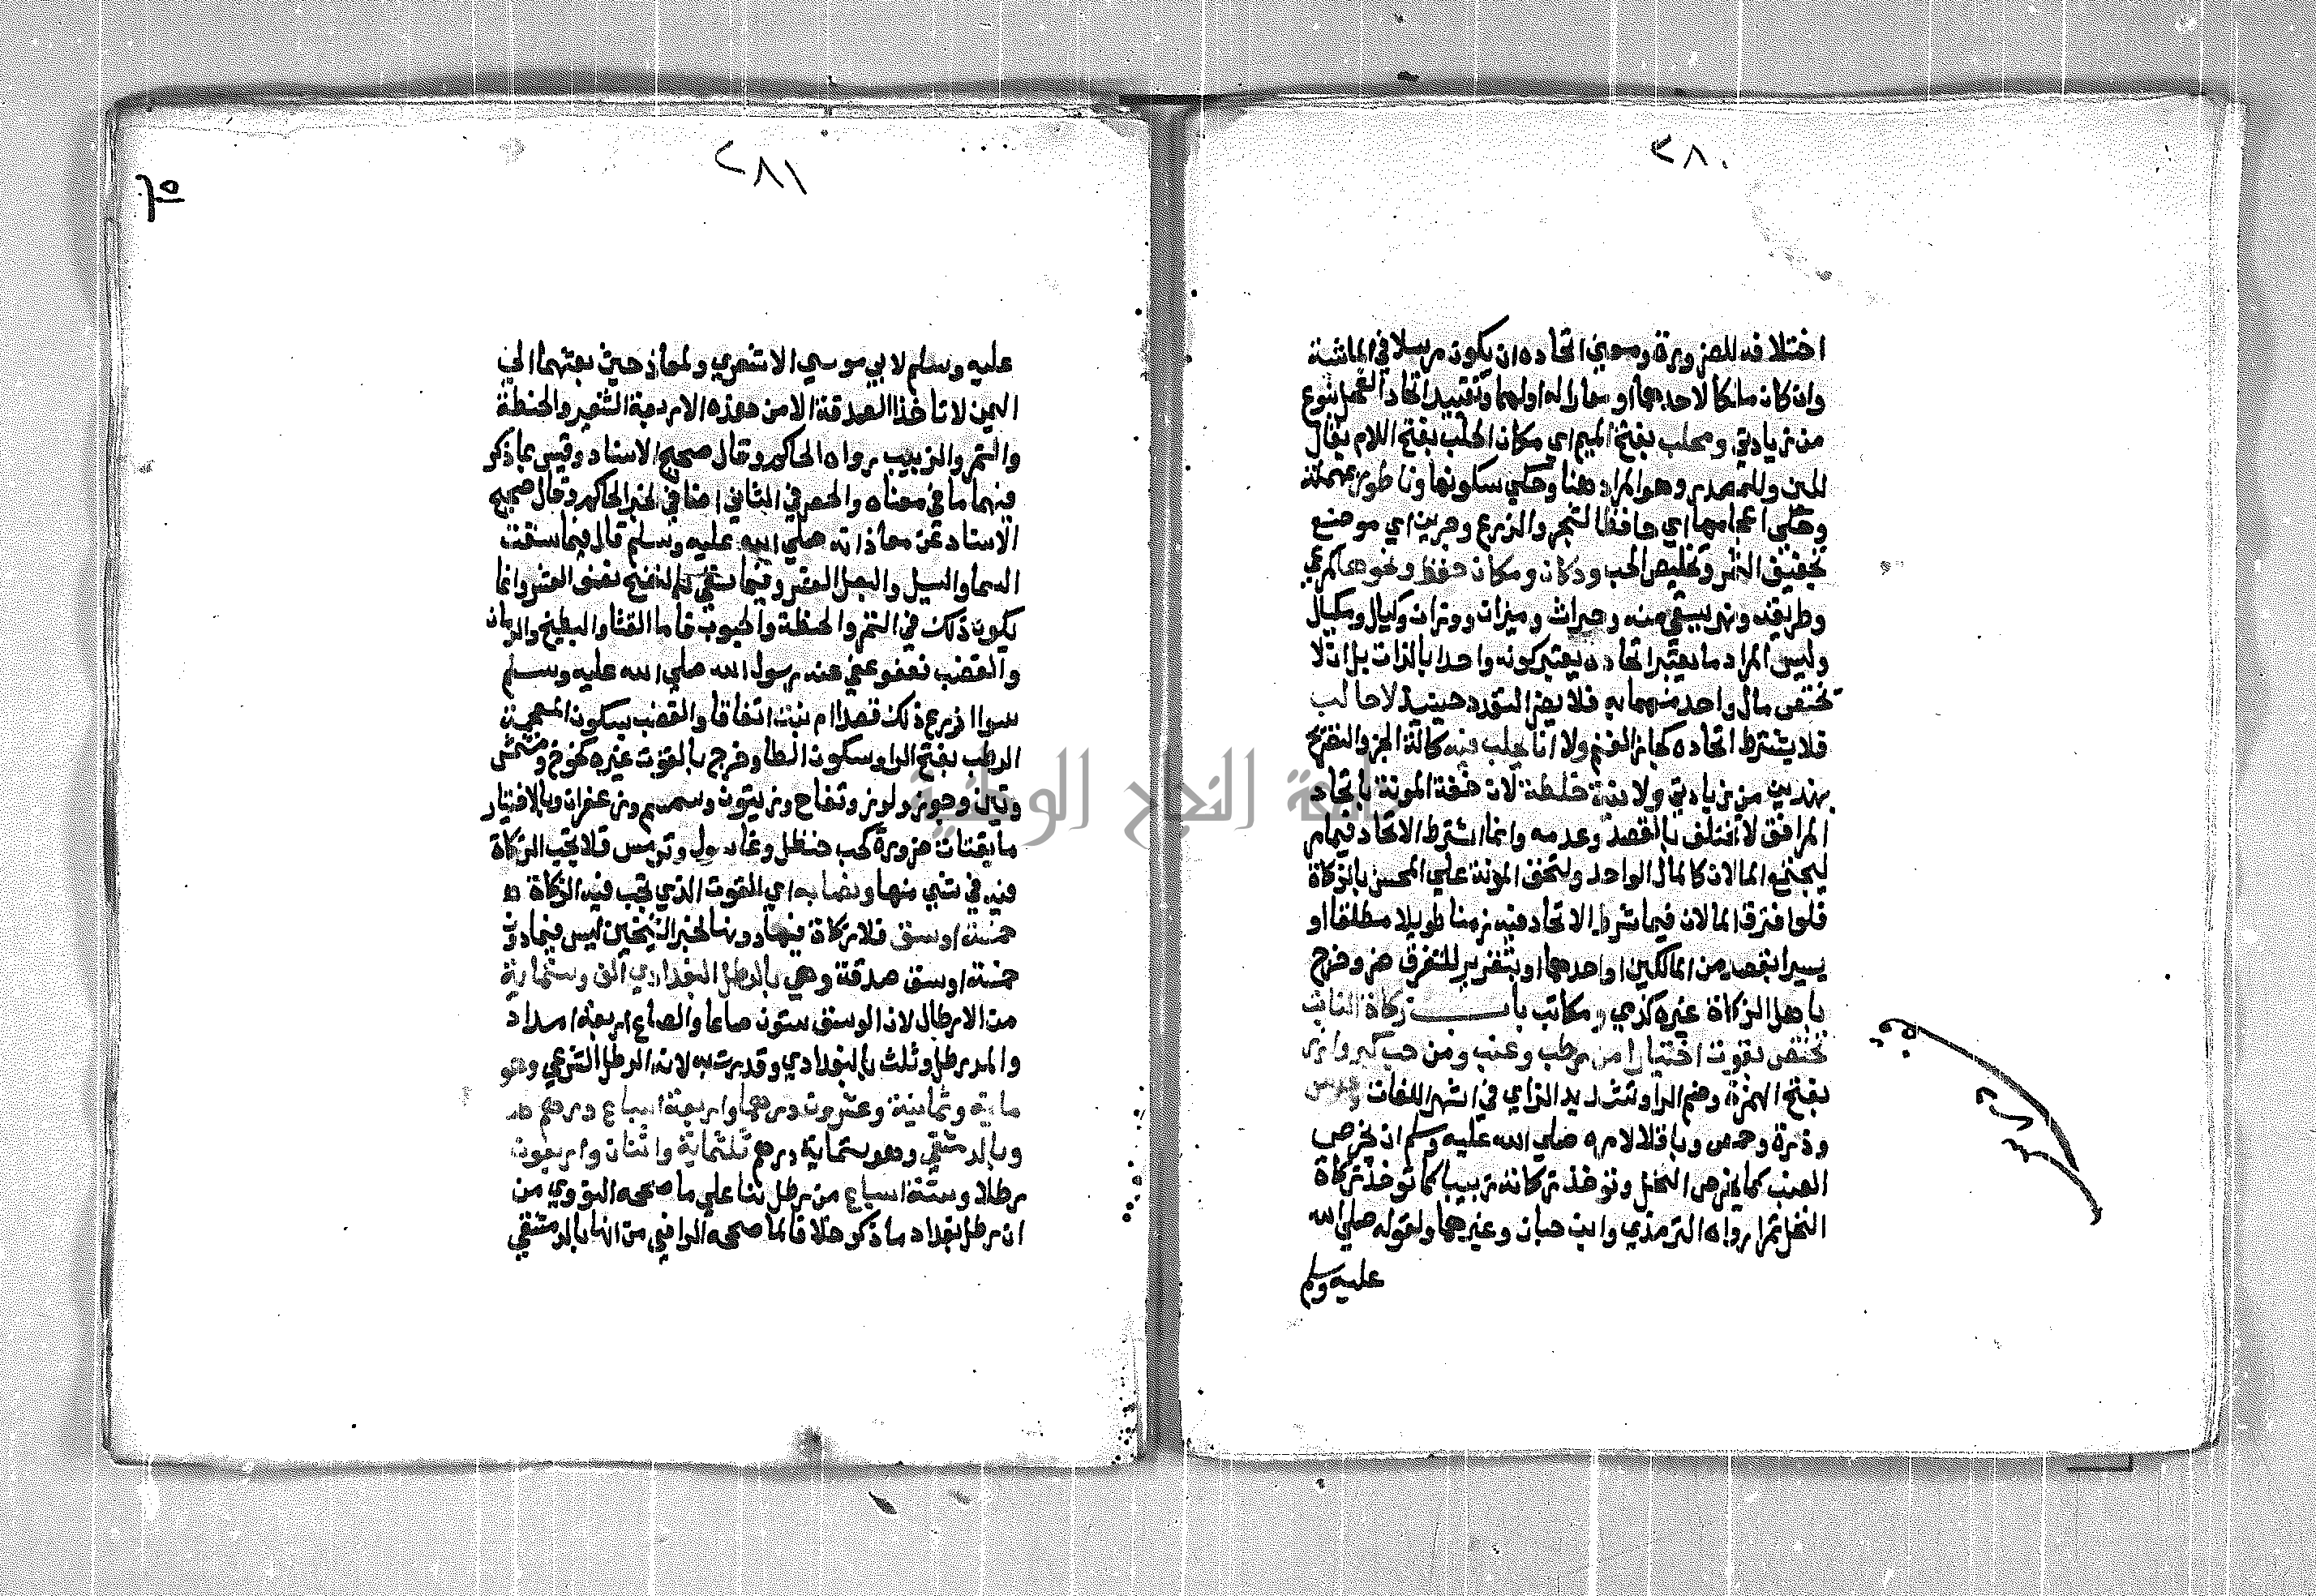 ٢٨٠
اختلافه للضرورة ومعني اتحاده ان يكون مرسلا في الماشية
وان كان ملكا لاحدهما او معارا له او لهما وتقييد اتحاد الفحل بنوع
من زيادتي ومحلب بفتح الميم اي مكان الحلب بفتح اللام يقال
للبن وللمصدر وهو المراد هنا وحكي سكونها وناطور بمهملة
وحكي اعجامها اي حافظ الشجر والزرع وجرين اي موضع
تجفيف الثمر وتخليص الحب ودكان ومكان حفظ ونحوها كمرعي
وطريقه ونهر يسقي منه وحراث وميزان ووزان وكيال ومكيال
وليس المراد ما يعتبر اتحاده يعتبر كونه واحدا بالذات بل ان لا
تختص مال واحد منهما به فلا يضر التعدد حينيذ لا حالب
فلا يشترط اتحاده كجاز الغنم ولا انا يحلب فيه كالة الجز والتصريح
بهذين من زيادتي ولا نية خلطة لان خفة المونة باتحاد
المرافق لا تختلف بالقصد وعدمه وانما اشترط الاتحاد فيما مر
ليجتمع المالان كالمال الواحد ولتخف المونة علي المحسن بالزكاة
فلو افترق المالان فيما شرط الاتحاد فيه زمنا طويلا مطلقا او
يسيرا بقصد من المالكين او احدهما او بتقرير للتفرق ضر وخرج
باهل الزكاة غيره كذمي ومكاتب باب زكاة النابت
تختص بقوت اختيارا من رطب وعنب ومن حب كبر وارز
بفتح الهمزة وضم الرا وتشديد الزاي في اشهر اللغات وعدس
وذرة وحمص وباقلا لامره صلي الله عليه وسلم ان يخرص
العنب كما يخرص النخل وتوخذ زكاته زبيبا كما توخذ زكاة
النخل تمرا رواه الترمذي وابن حبان وغيرهما ولقوله صلي الله
عليه وسلم
٢٨١
عليه وسلم لابي موسي الاشعري ولمعاذ حين بعثهما الي
اليمن لا تاخذا الصدقة الا من هذه الاربعة الشعير والحنطة
والتمر والزبيب رواه الحاكم وقال صحيح الاسناد وقيس بما ذكر
فيهما ما في معناه والحصر في الثاني اضافي لخبر الحاكم وقال صحيح
الاسناد عن معاذ انه صلي الله عليه وسلم قال فيما سقت
السما والسيل والبعل العشر وفيما سقي بالنضح نصف العشر وانما
يكون ذلك في التمر والحنطة والحبوب فاما القثا والبطيخ والرمان
والقضب فعفو عفي عنه رسول الله صلي الله عليه وسلم
سوا ازرع ذلك قصدا ام نبت اتفاقا والقضب بسكون المعجمة
الرطب بفتح الرا وسكون الطا وخرج بالقوت غيره كخوخ ومشمش
وتين وجوز ولوز وتفاح وزيتون وسمسم وزعفران وبالاختيار
ما يقتات ضرورة كحب حنظل وغاسول وترمس فلا تجب الزكاة
فيه في شي منها ونصابه اي القوت الذي تجب فيه الزكاة
خمسة اوسق فلا زكاة فيما دونها لخبر الشيخين ليس فيما دون
خمسة اوسق صدقة وهي بالرطل البغدادي الف وستماية
من الارطال لان الوسق ستون صاعا والصاع اربعة امداد
والمد رطل وثلث بالبغدادي وقدرت به لانه الرطل الشرعي وهو
ماية وثمانية وعشرون درهما واربعة اسباع درهم
وبالدمشقي وهو ستماية درهم ثلثماية واثنان واربعون
رطلا وستة اسباع من رطل بنا علي ما صححه النووي من
ان رطل بغداد ما ذكر خلافا لما صححه الرافعي من انها بالدمشقي